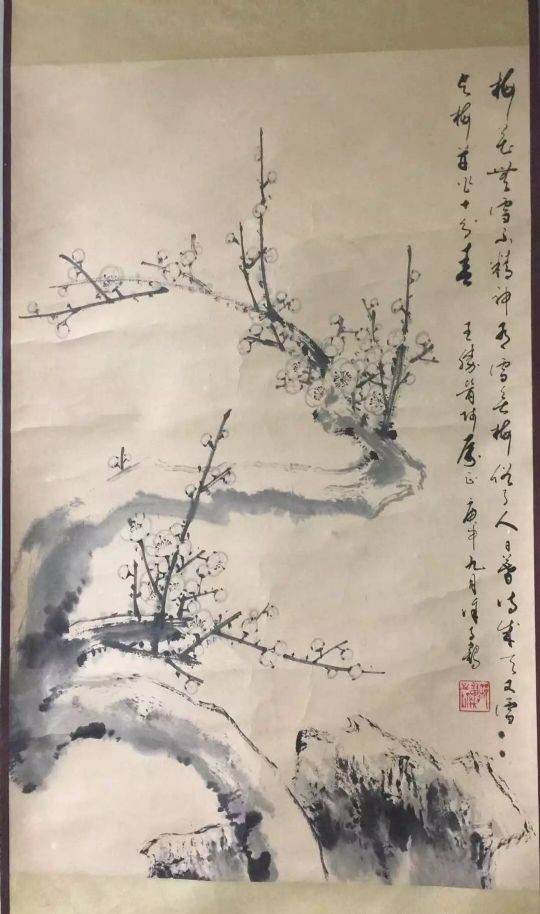 梅花無雪不精神有雪無梅俗了人日暮詩成天又雪
与梅并作十分春 王勝 正 庚申九月